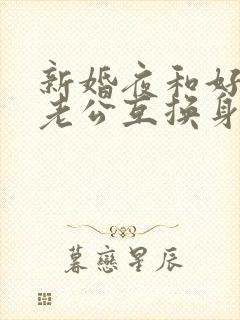 新婚夜和好
老公互换身
暮恋星辰